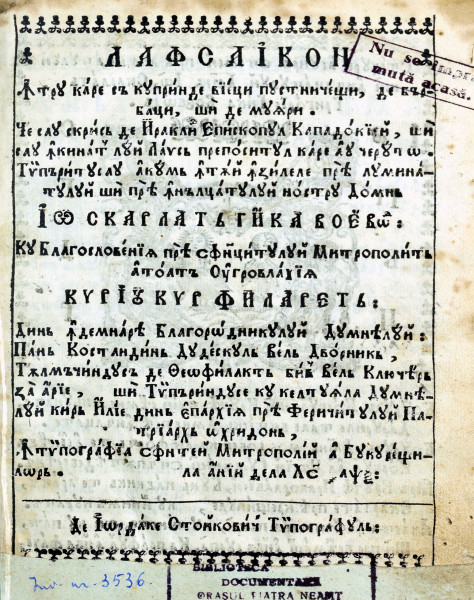 ЛАФСАІКОН
Ꙟтру каре съ куприндє вїеци пустничещи, де бър-
баци, ши де муѧри.
Че сау скрис де Ираклїй Епископул Кападокїей, ши
сау ꙟкинат луй Лаѵсъ препоситул каре ау черут ѡ.
Тѷпъритусау акум ꙟтѫй ꙟ ꙁилеле прѣ лумина-
тулуй ши прѣ ꙟнълцатулуй ностру Домнь
ІѠ СКАРЛАТЪ ГИКА ВОЕВѠ:
Ку Благословенїѧ прѣ сфинцитулуй Митрополитъ
а тоатъ Оугровлахїѧ
КУРІѸ КУР ФИЛАРЕТЬ:
Динь ꙟдемнарѣ Благородникулуй Думнѣлуй:
Пань Костандинь Дудескуль Вель Дворникъ,
Тѫлмъчиндусъ де Ѳеофилактъ бив Вель Клучерь
ꙁа арїе, ши Тѷпъриндусе ку келтуѧла Думнѣ-
луй кирь Илїе динь епархїѧ прѣ Феричитулуй Па-
трїархъ ѡхридонь,
Ꙟ тѷпографїа сфинтей Митрополїй ꙟ Букурещи-
лѡрь. ла анїй дела Хс҃ аѱѯ:
Де Іордаке Стойковичь Тѷпографуль:
Nu se împru-
mută acasă.
Inv. nr. 3536.
BIBLIOTECA
DOCUMENTARĂ
ORAȘUL PIATRA NEAMȚ